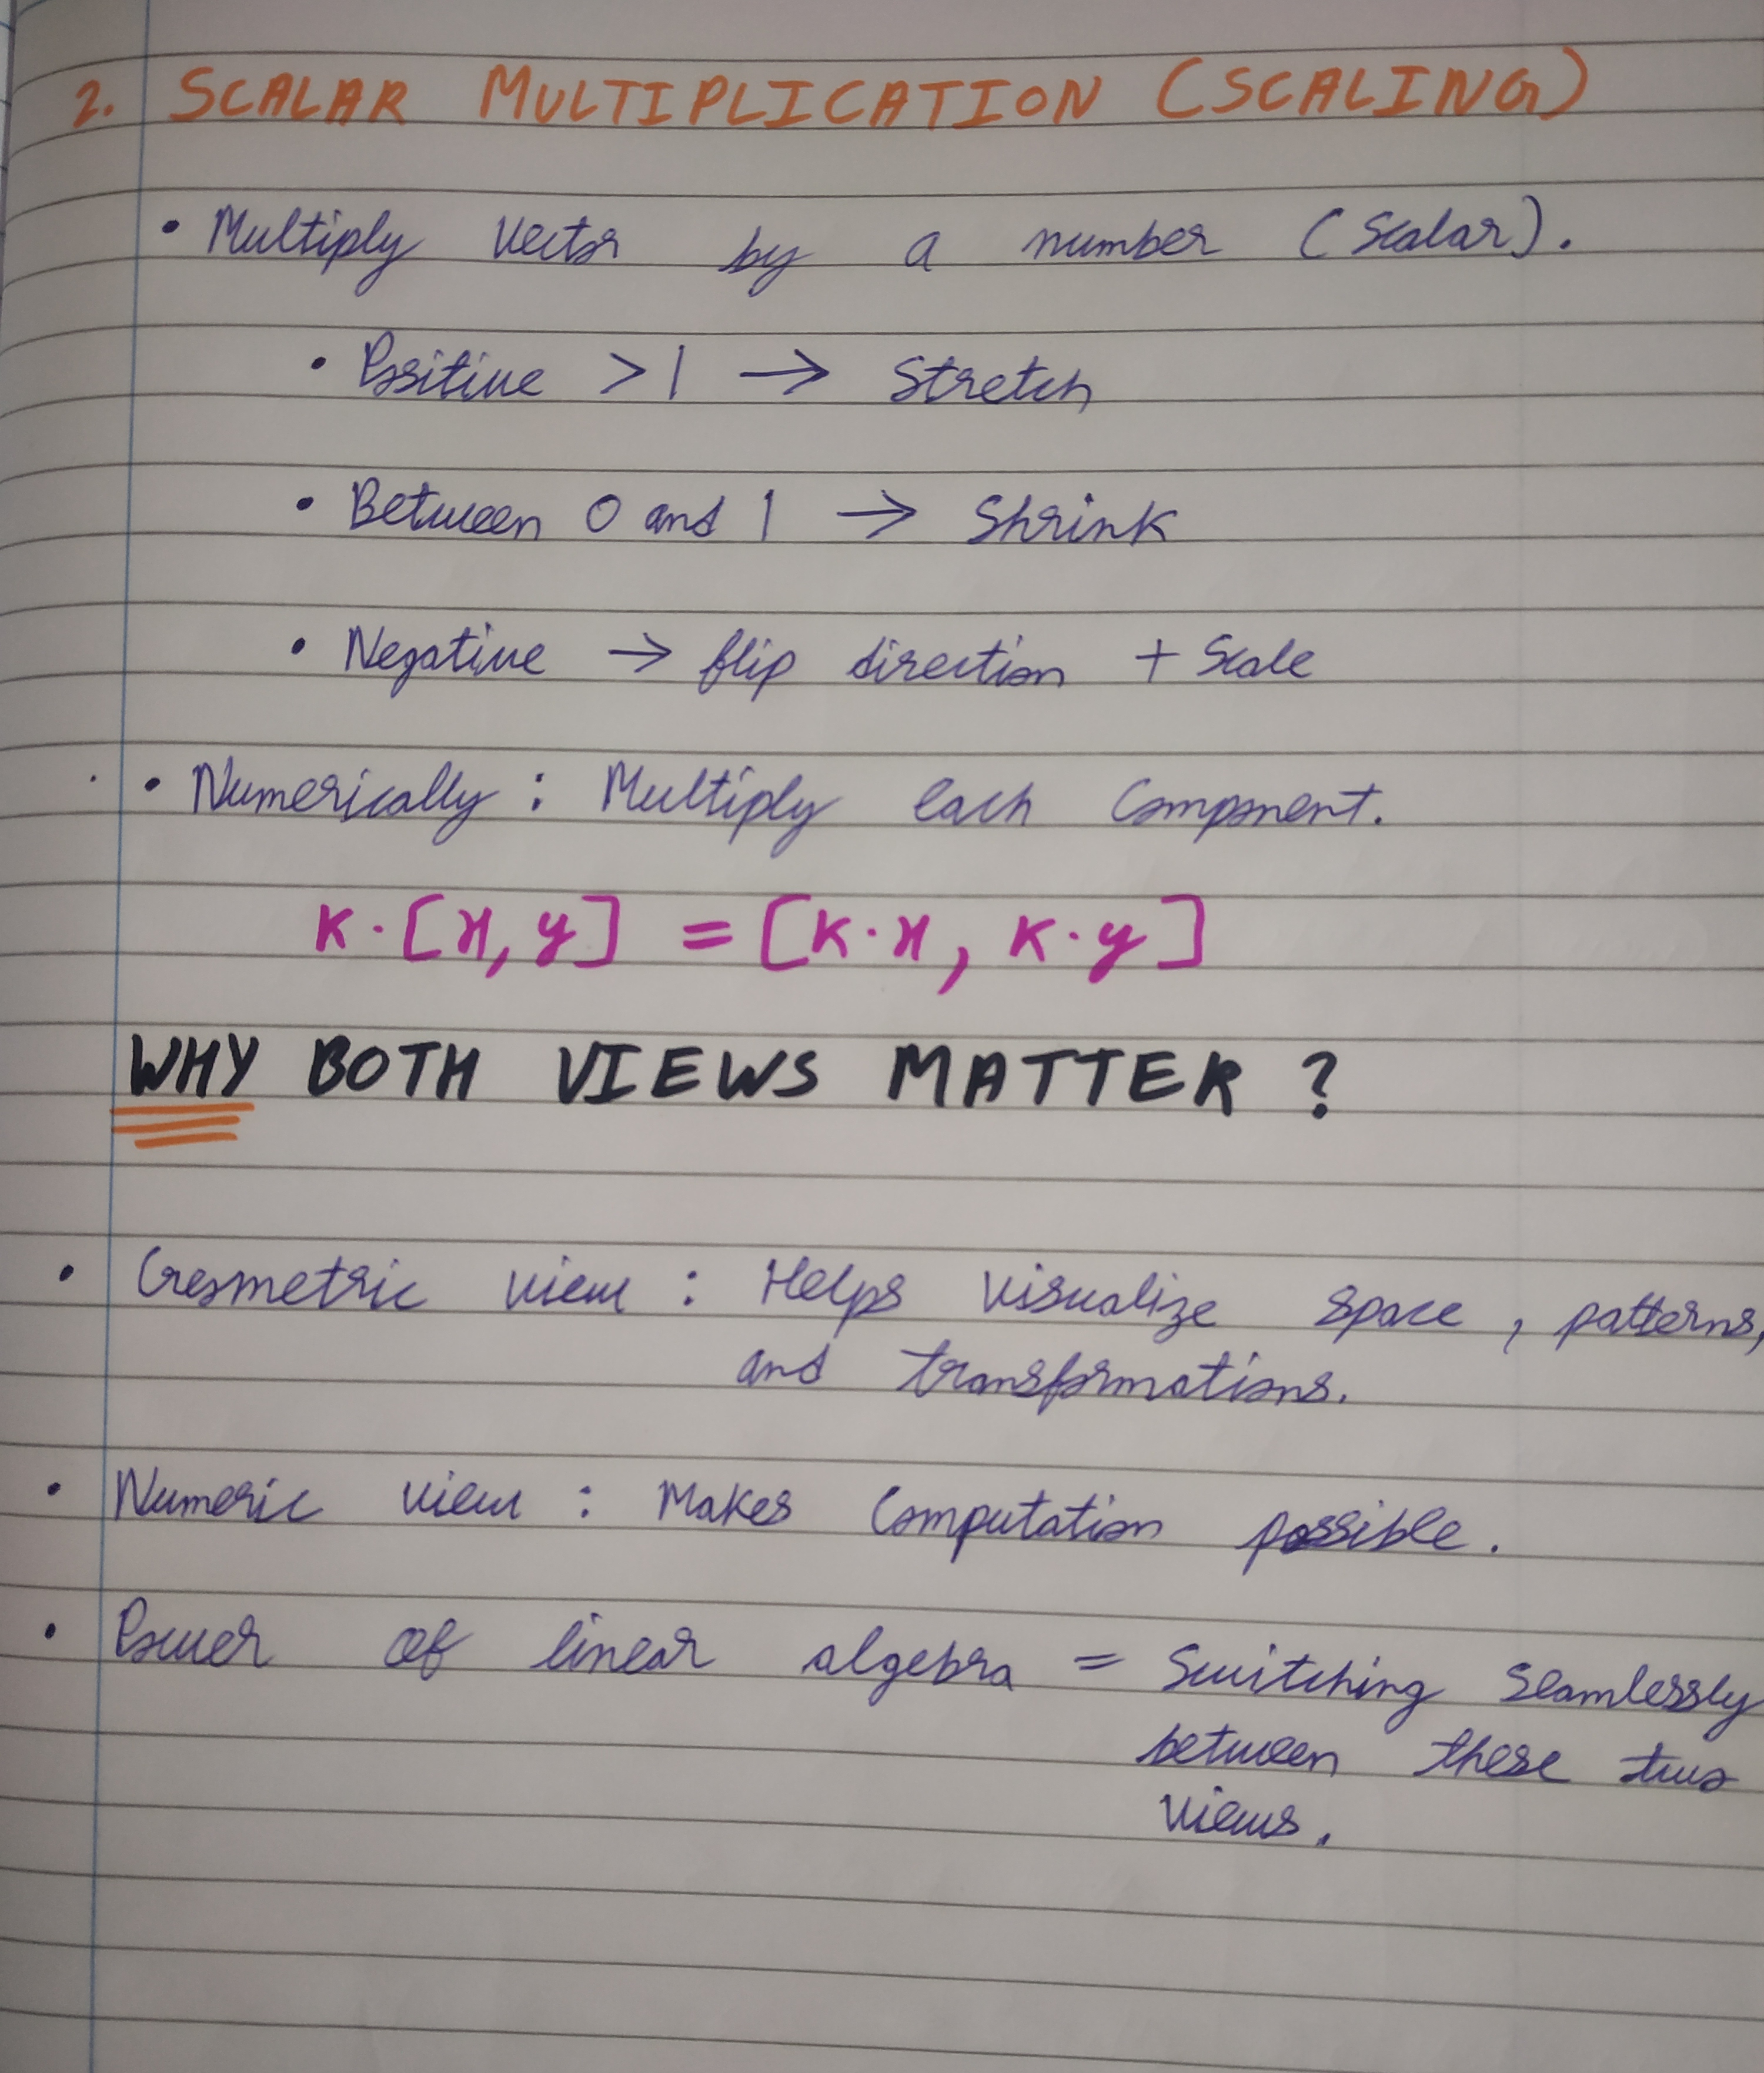 2. SCALAR MULTIPLICATION (SCALING)
• Multiply Vector by a number (Scalar).
• Positive >1 → Stretch
• Between 0 and 1 → Shrink
• Negative → flip direction + Scale
• Numerically : Multiply each Component.
K·[x, y] = [K·x, K·y]
WHY BOTH VIEWS MATTER ?
• Geometric view : Helps visualize space, patterns,
and transformations.
• Numeric view : Makes Computation possible.
• Power of linear algebra = Switching Seamlessly
between these two
views.